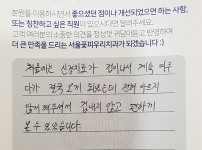 본원을 이용하시면서 좋으셨던 점이나 개선되었으면 하는 사항,
또는 칭찬하고 싶은 직원이 있으시다면 말려주세요.
고객 여러분의 소중한 의견을 점정껏 귀담아듣고 반영하여
더 큰 만족을 드리는 서울꽃피우리치과가 되겠습니다 :)
처음에는 신경치료가 겁이나서 계속 미루
다가 결국 오게 되었는데 전혀 아프지
않게 해주셔서 겁내지 않고 편하게
올 수 있었습니다.